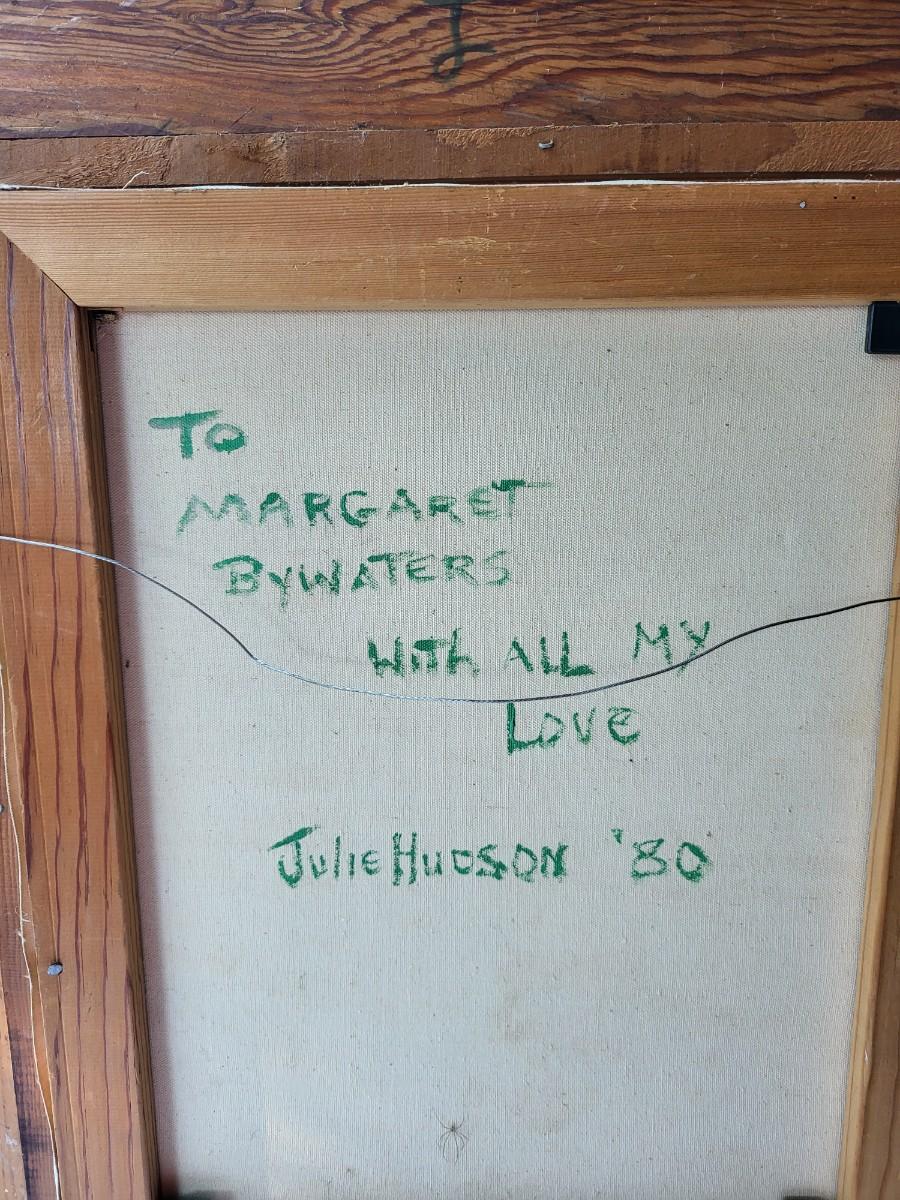 To
MARGARET
BYWATERS
With ALL MY
LOVE
Julie HUDSON '80